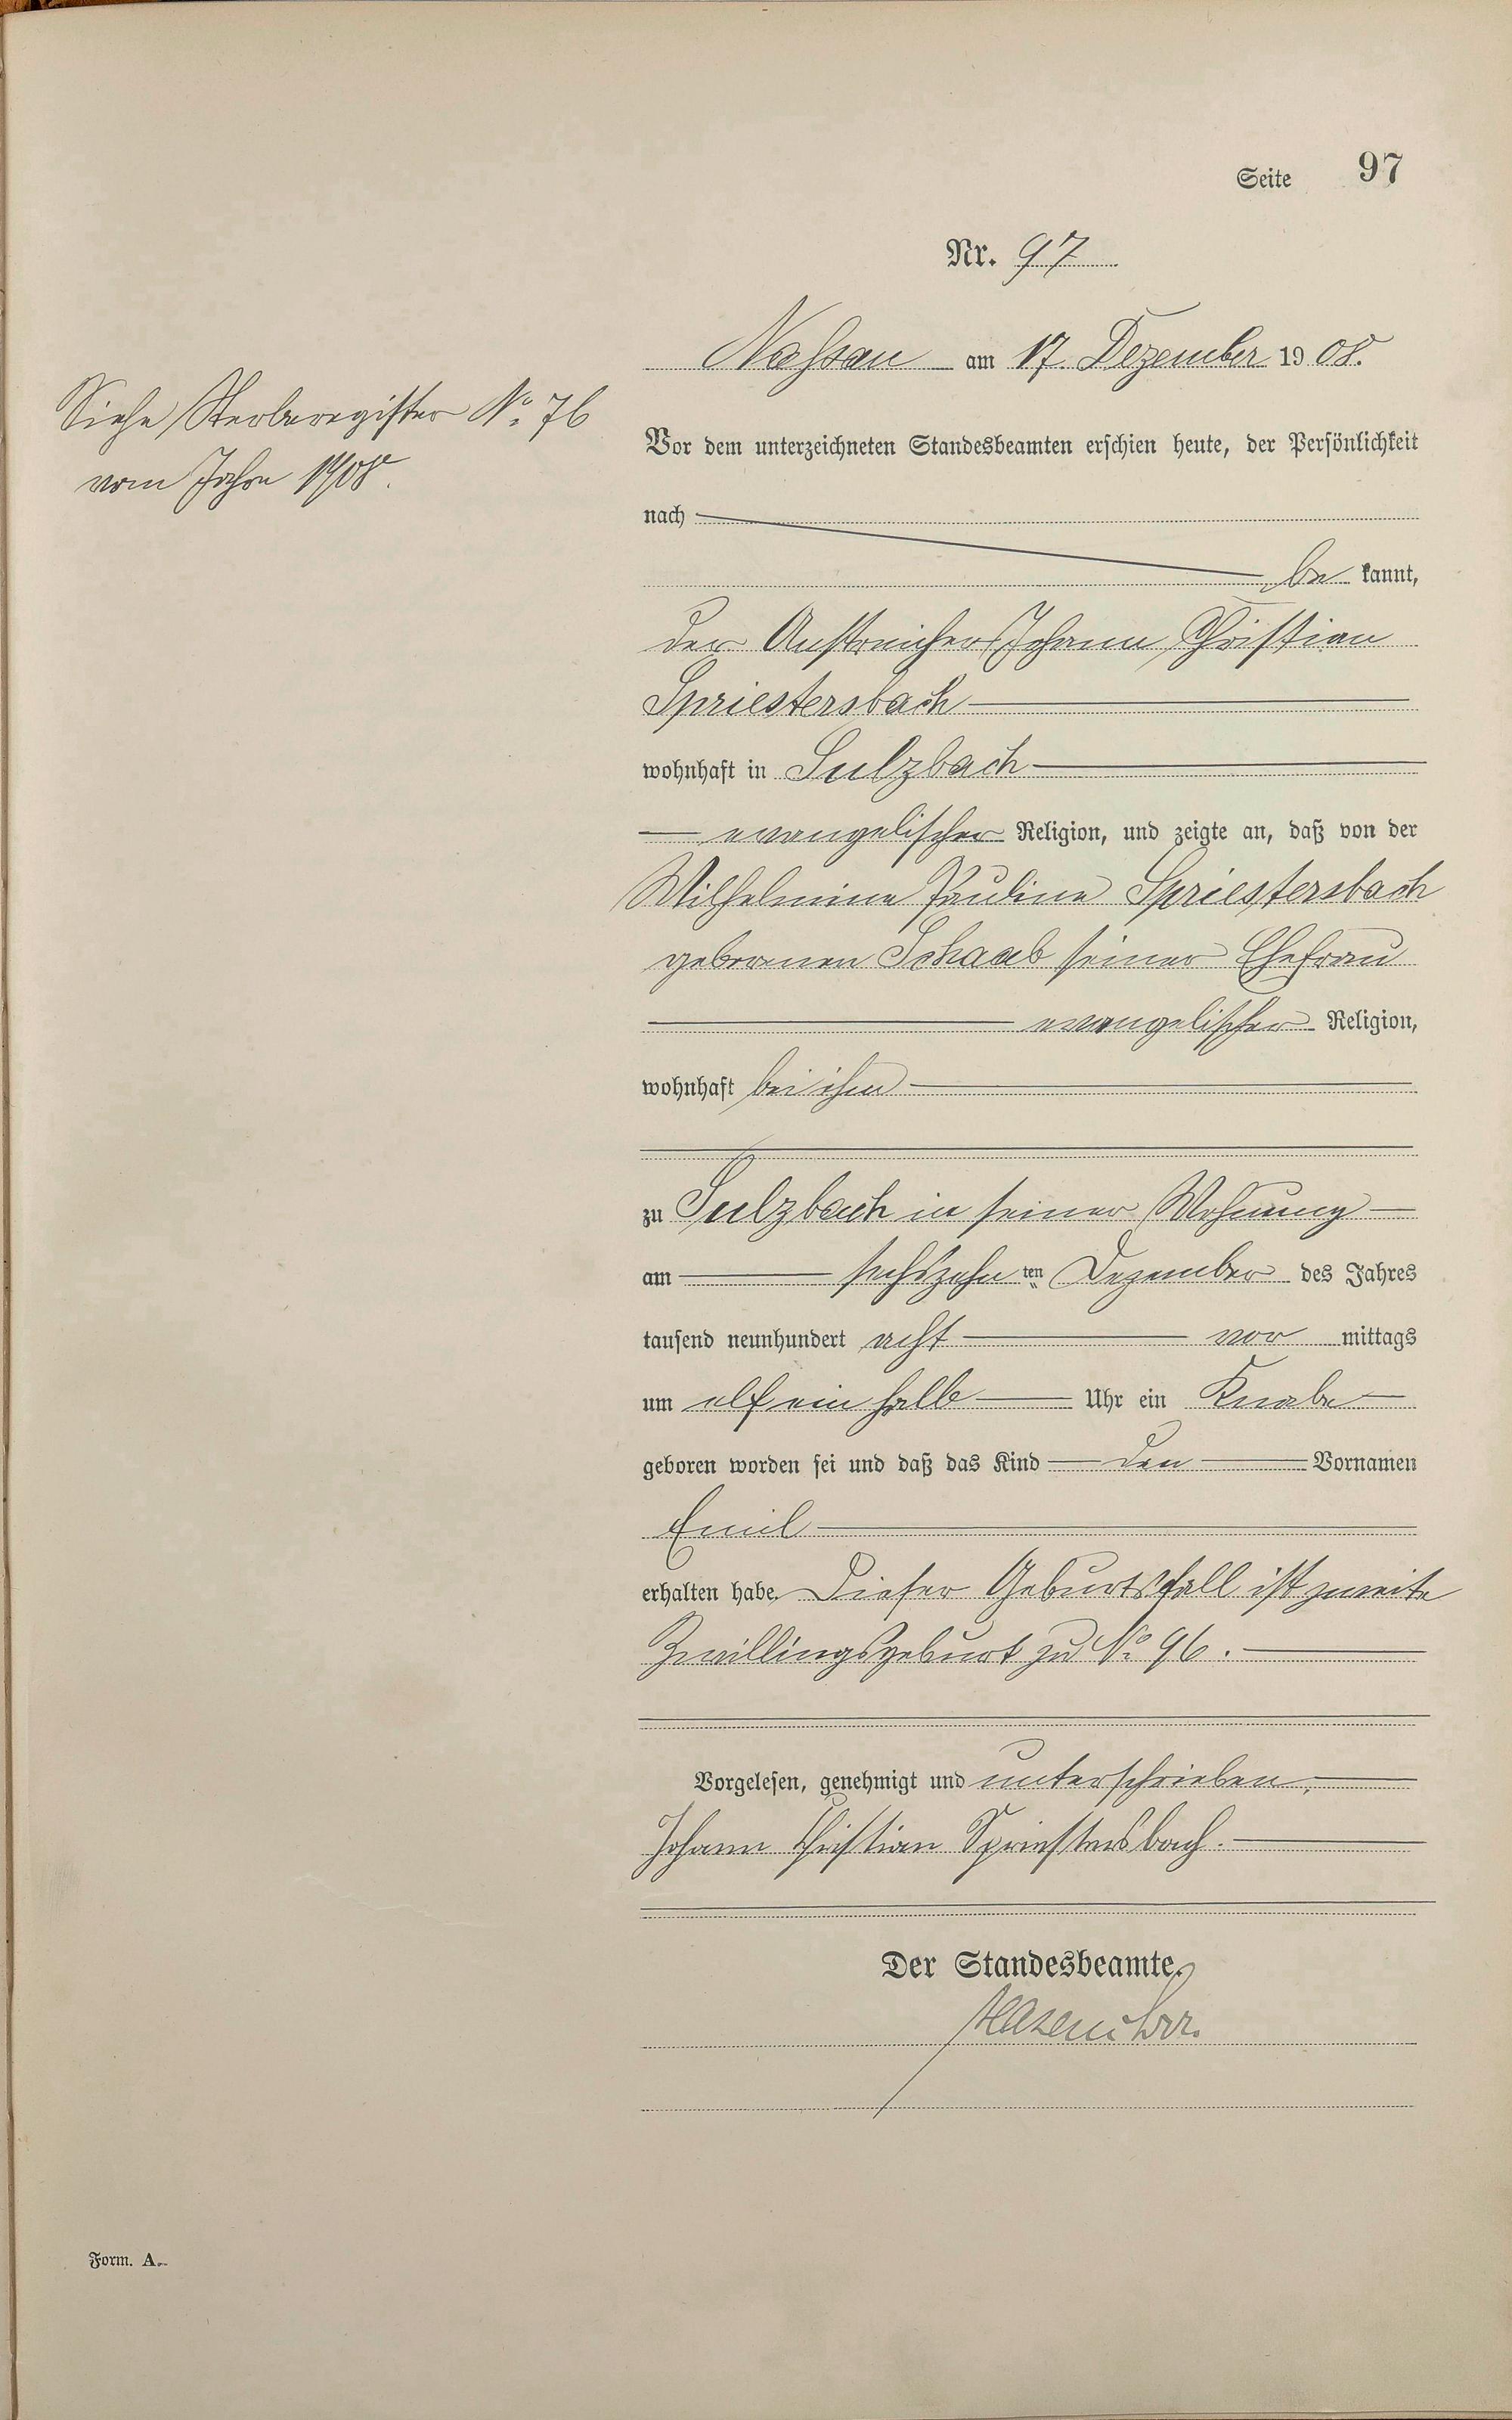 Seite 97
Nr. 97
Nassau am 17. Dezember 1908.
Siehe Sterberegister No 76
vom Jahre 1908.
Vor dem unterzeichneten Standesbeamten erschien heute, der Persönlichkeit
nach
be kannt,
der Anstreicher Johann Christian
Spriestersbach
wohnhaft in Sulzbach
evangelischer Religion, und zeigte an, daß von der
Wilhelmine Pauline Spriestersbach
geborenen Schaab seiner Ehefrau
evangelischer Religion,
wohnhaft bei ihm
zu Sulzbach in seiner Wohnung
am sechszehn ten Dezember des Jahres
tausend neunhundert acht vor mittags
um elf ein halb Uhr ein Knabe
geboren worden sei und daß das Kind den Vornamen
Emil
erhalten habe. Dieser Geburtsfall ist zweite
Zwillingsgeburt zu No 96.
Vorgelesen, genehmigt und unterschrieben.
Johann Christian Spriestersbach.
Der Standesbeamte.
Form. A.